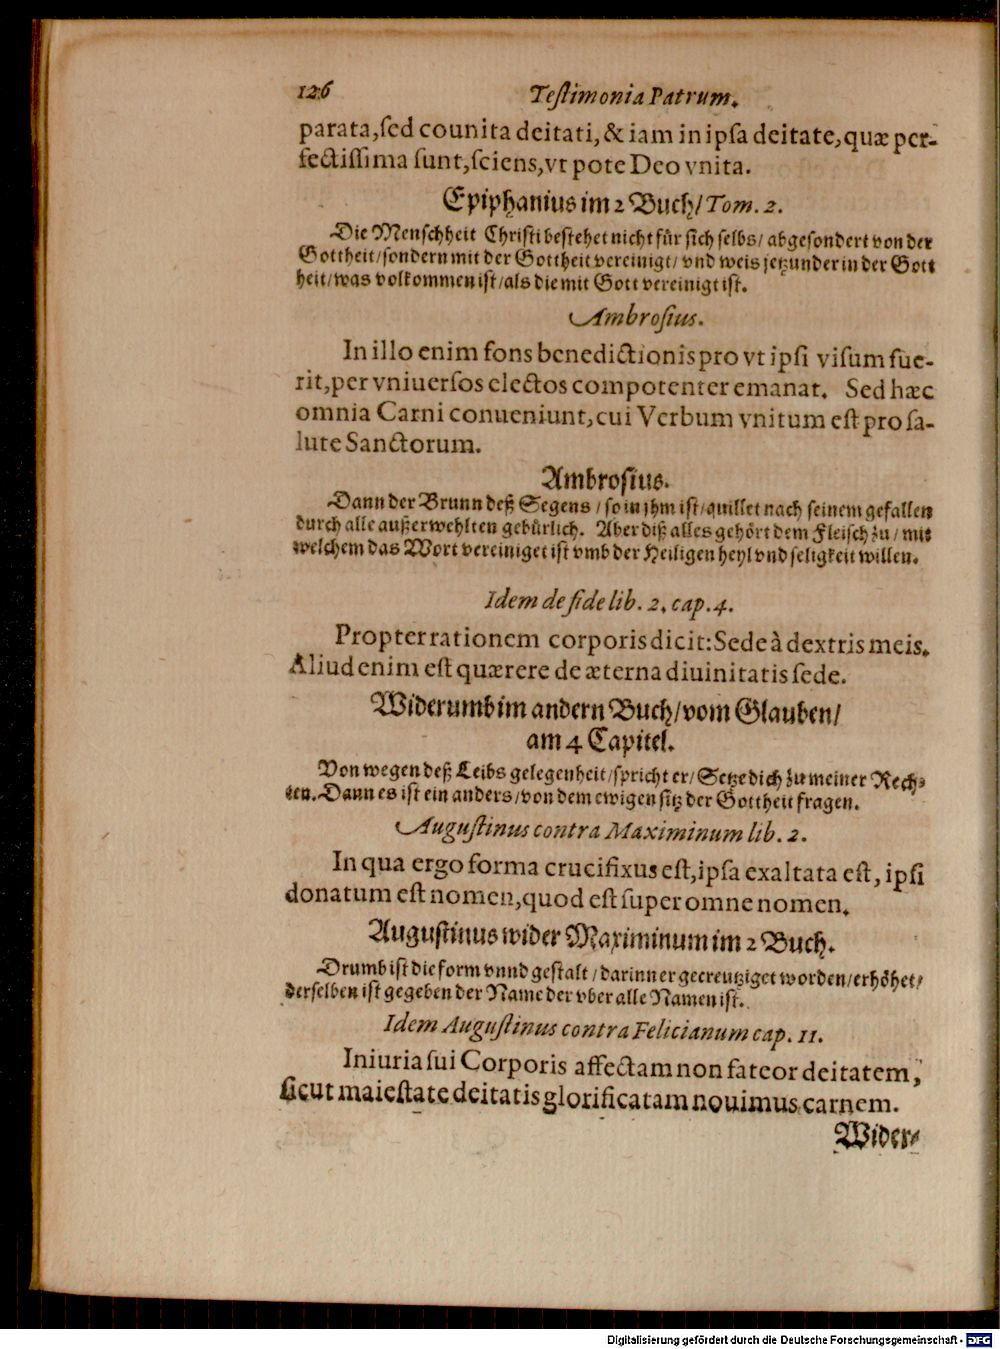 126 Teſtimonia Patrum.
parata,ſed counita deitati,& iam in ipſa deitate,quæ per-
fectiſſima ſunt,ſciens,vt pote Deo vnita.
Epiphanius im 2 Buch/Tom. 2.
Die Menſchheit Chriſti beſtehet nicht für ſich ſelbs/ abgeſondert von der
Gottheit/ſondern mit der Gottheit vereinigt/ vnd weis jetzunder in der Gott
heit/was volkommen iſt/als die mit Gott vereinigt iſt.
Ambroſius.
In illo enim fons benedictionis pro vt ipſi viſum fue-
rit,per vniuerſos electos compotenter emanat. Sed hæc
omnia Carni conueniunt,cui Verbum vnitum eſt pro ſa-
lute Sanctorum.
Ambroſius.
Dann der Brunn deß Segens / ſo in jhm iſt/quillet nach ſeinem gefallen
durch alle außerwehlten gebürlich. Aber diß alles gehört dem Fleiſch zu/ mit
welchem das Wort vereiniget iſt vmb der Heiligen heyl vnd ſeligkeit willen.
Idem de fide lib. 2. cap. 4.
Propter rationem corporis dicit: Sede à dextris meis.
Aliud enim eſt quærere de æterna diuinitatis ſede.
Widerumb im andern Buch/vom Glauben/
am 4 Capitel.
Von wegen deß Leibs gelegenheit/ſpricht er/ Setze dich zu meiner Rech-
ten. Dann es iſt ein anders/von dem ewigen ſitz der Gottheit fragen.
Auguſtinus contra Maximinum lib. 2.
In qua ergo forma crucifixus eſt,ipſa exaltata eſt, ipſi
donatum eſt nomen,quod eſt ſuper omne nomen.
Auguſtinus wider Maximinum im 2 Buch.
Drumb iſt die form vnnd geſtalt / darinn er gecreutziget worden/erhöhet/
derſelben iſt gegeben der Name der vber alle Namen iſt.
Idem Auguſtinus contra Felicianum cap. 11.
Iniuria ſui Corporis affectam non fateor deitatem,
ſicut maieſtate deitatis glorificatam nouimus carnem.
Wider-
Digitalisierung gefördert durch die Deutsche Forschungsgemeinschaft - DFG